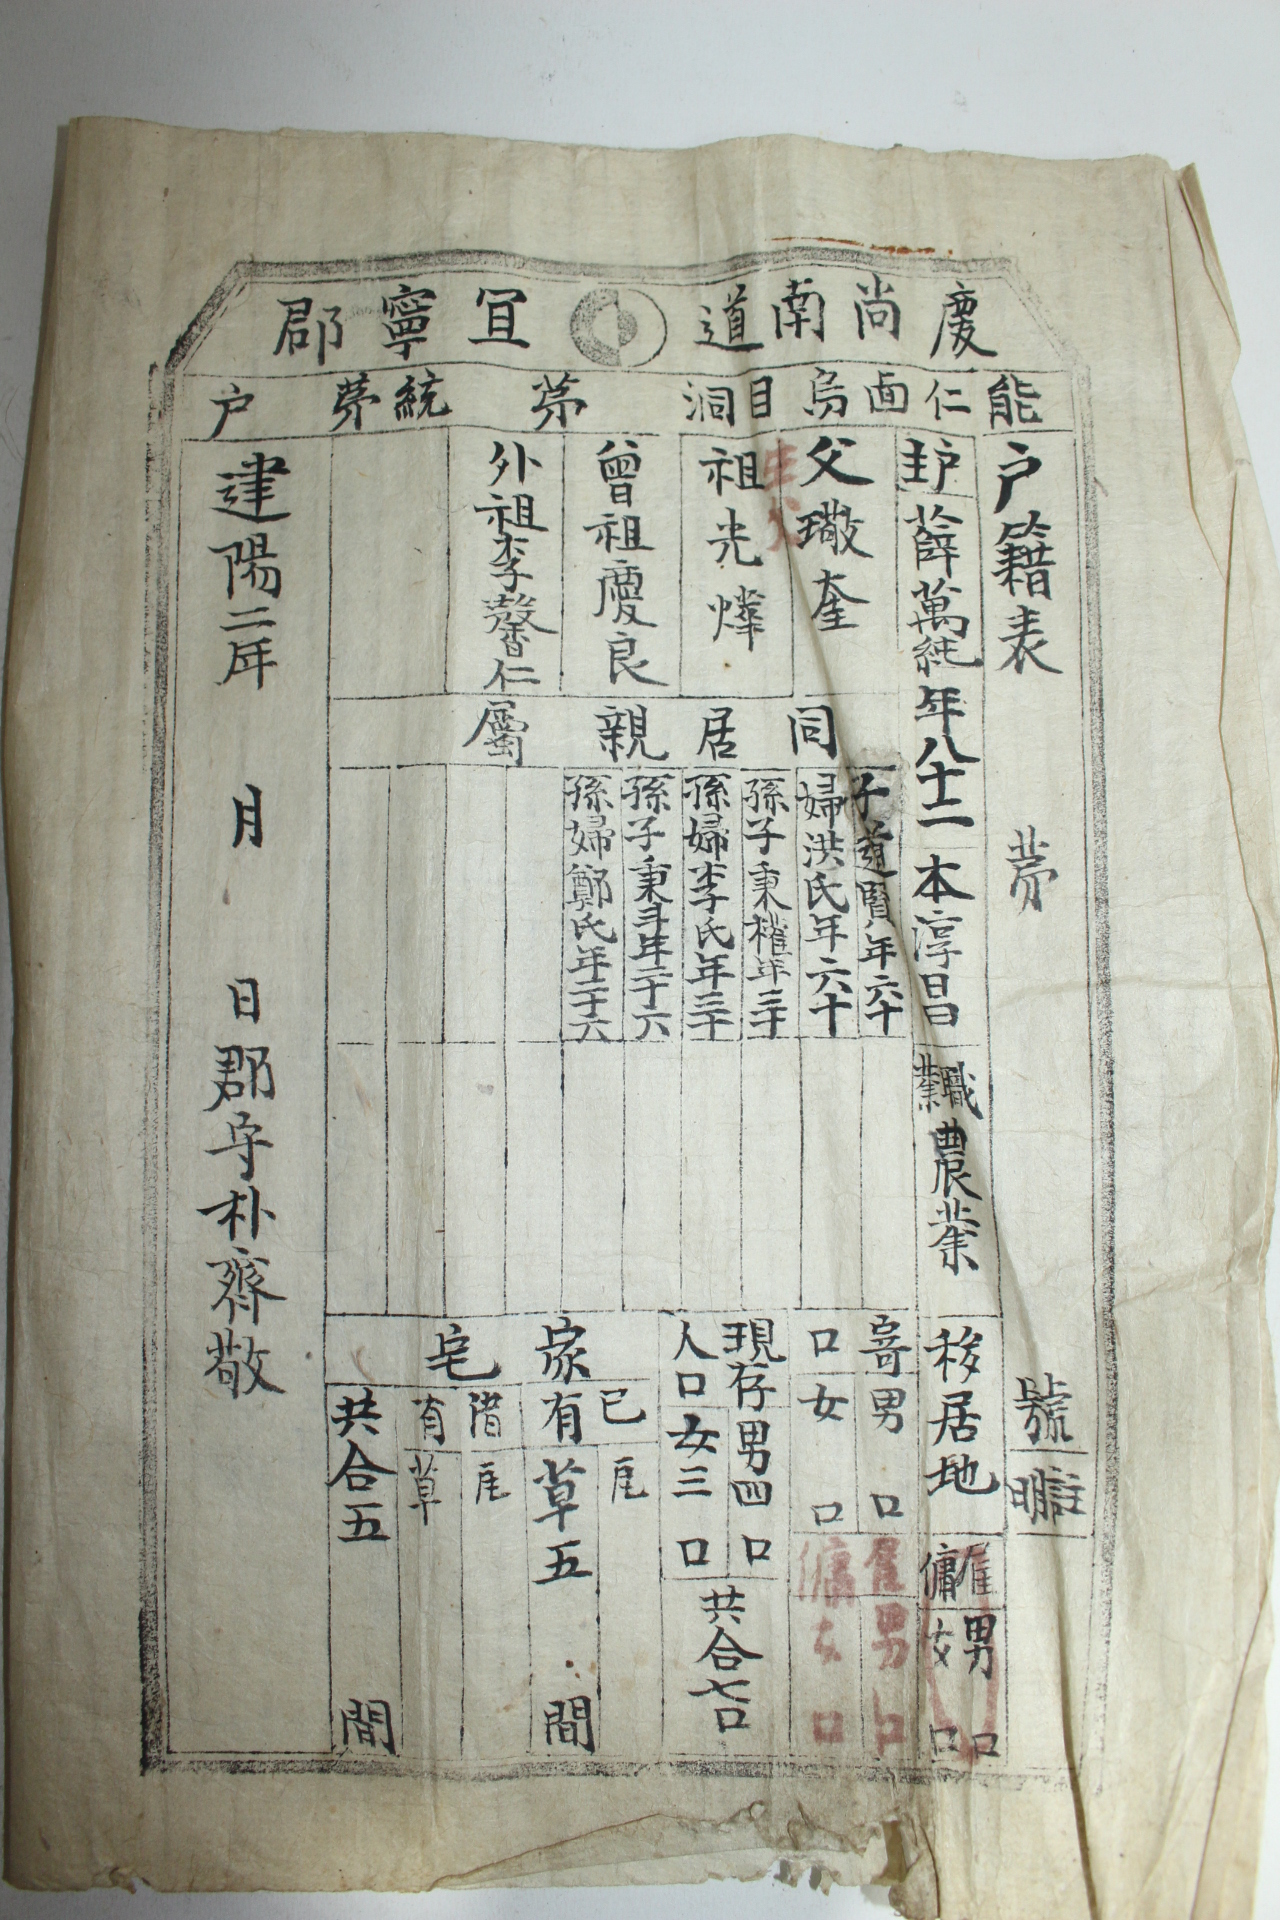 慶尚南道 宜寧郡
能仁面烏目洞 第 統第 戶
戶籍表 第 號
戶主 薛萬純 年八十二 本淳昌 職業 農業 移居地
雇傭 男 口 女 口
父 璥奎
祖 光燁
曾祖 慶良
外祖 李馨仁
同居親屬
子道賢年六十
婦洪氏年六十
孫子秉權年三十
孫婦李氏年三十
孫子秉斗年二十六
孫婦鄭氏年二十六
寄口 男 口 女 口
雇傭 男 口 女 口
現存人口 男四口 女三口
共合七口
家宅
已有 瓦 草五 間
借有 瓦 草
共合五 間
建陽二年 月 日 郡守朴齊敬